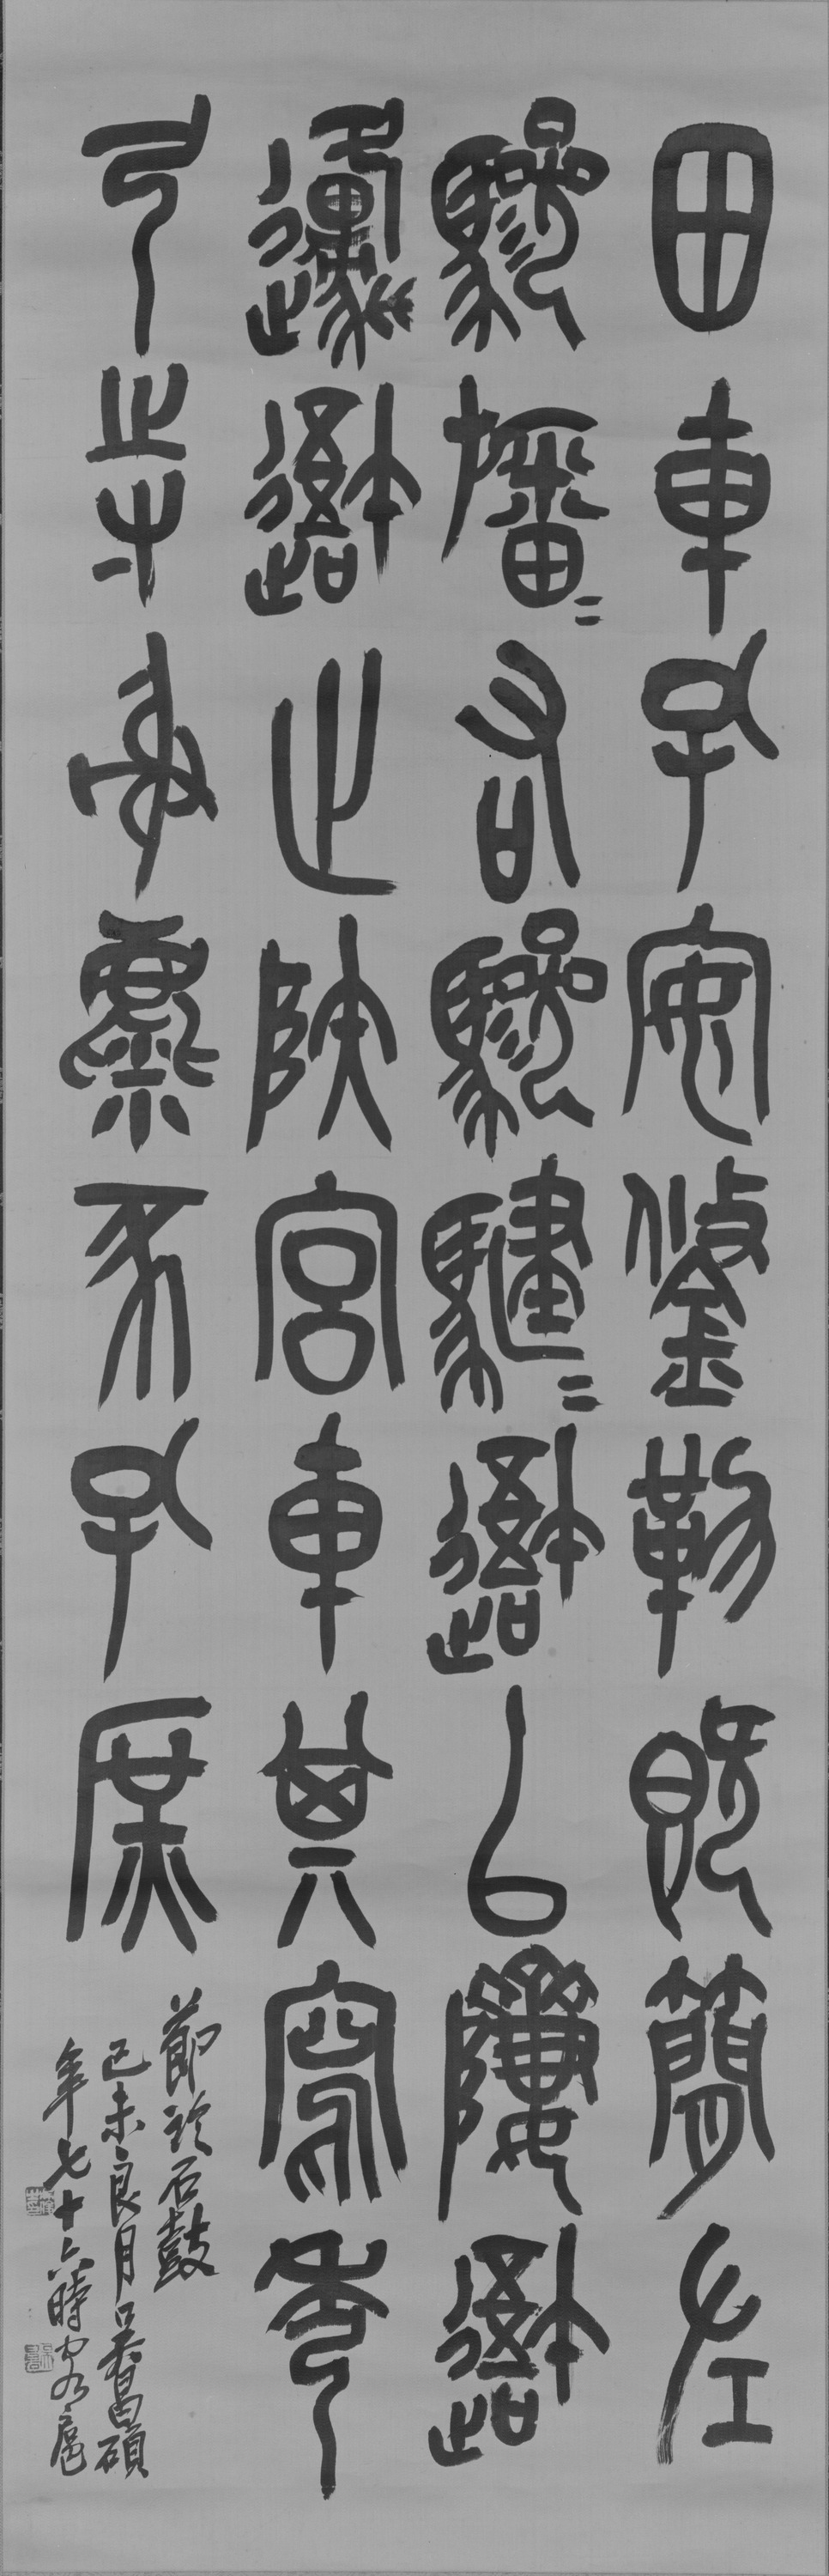 田車孔安鋚勒既簡左
驂旛=右驂騝=䢩以隮䢩
邍䢩止陝宮車其寫秀
弓寺射麋豕孔庶
節臨石鼓
己未良月吳昌碩
年七十六時客扈